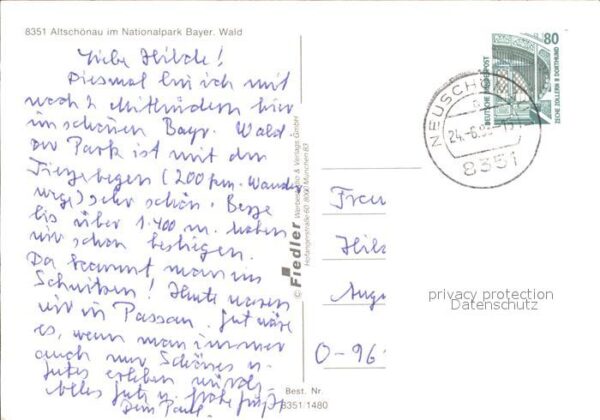 8351 Altschönau im Nationalpark Bayer. Wald
Liebe Hilde!
Diesmal bin ich mit
noch 2 Mitkindern hier
im schönen Bayr. Wald
Der Park ist mit den
Tiergehegen (200 km Wander
wege) sehr schön. Berge
bis über 1.400 m. haben
wir schon bestiegen.
Da kommt man ins
Schwitzen! Heute waren
wir in Passau. Gut wäre
es, wenn man immer
auch nur Schönes u.
Gutes erleben würde.
Alles Gute u. frohe Grüße
Dein Paul.
© Fiedler Werbefoto & Verlags GmbH
Hofangerstraße 60, 8000 München 83
Best. Nr.
8351/1480
80
DEUTSCHE BUNDESPOST
ZECHE ZOLLERN II DORTMUND
NEUSCHÖ
24.-6.
8351
Frau
Hil
Aug
O-96
privacy protection
Datenschutz